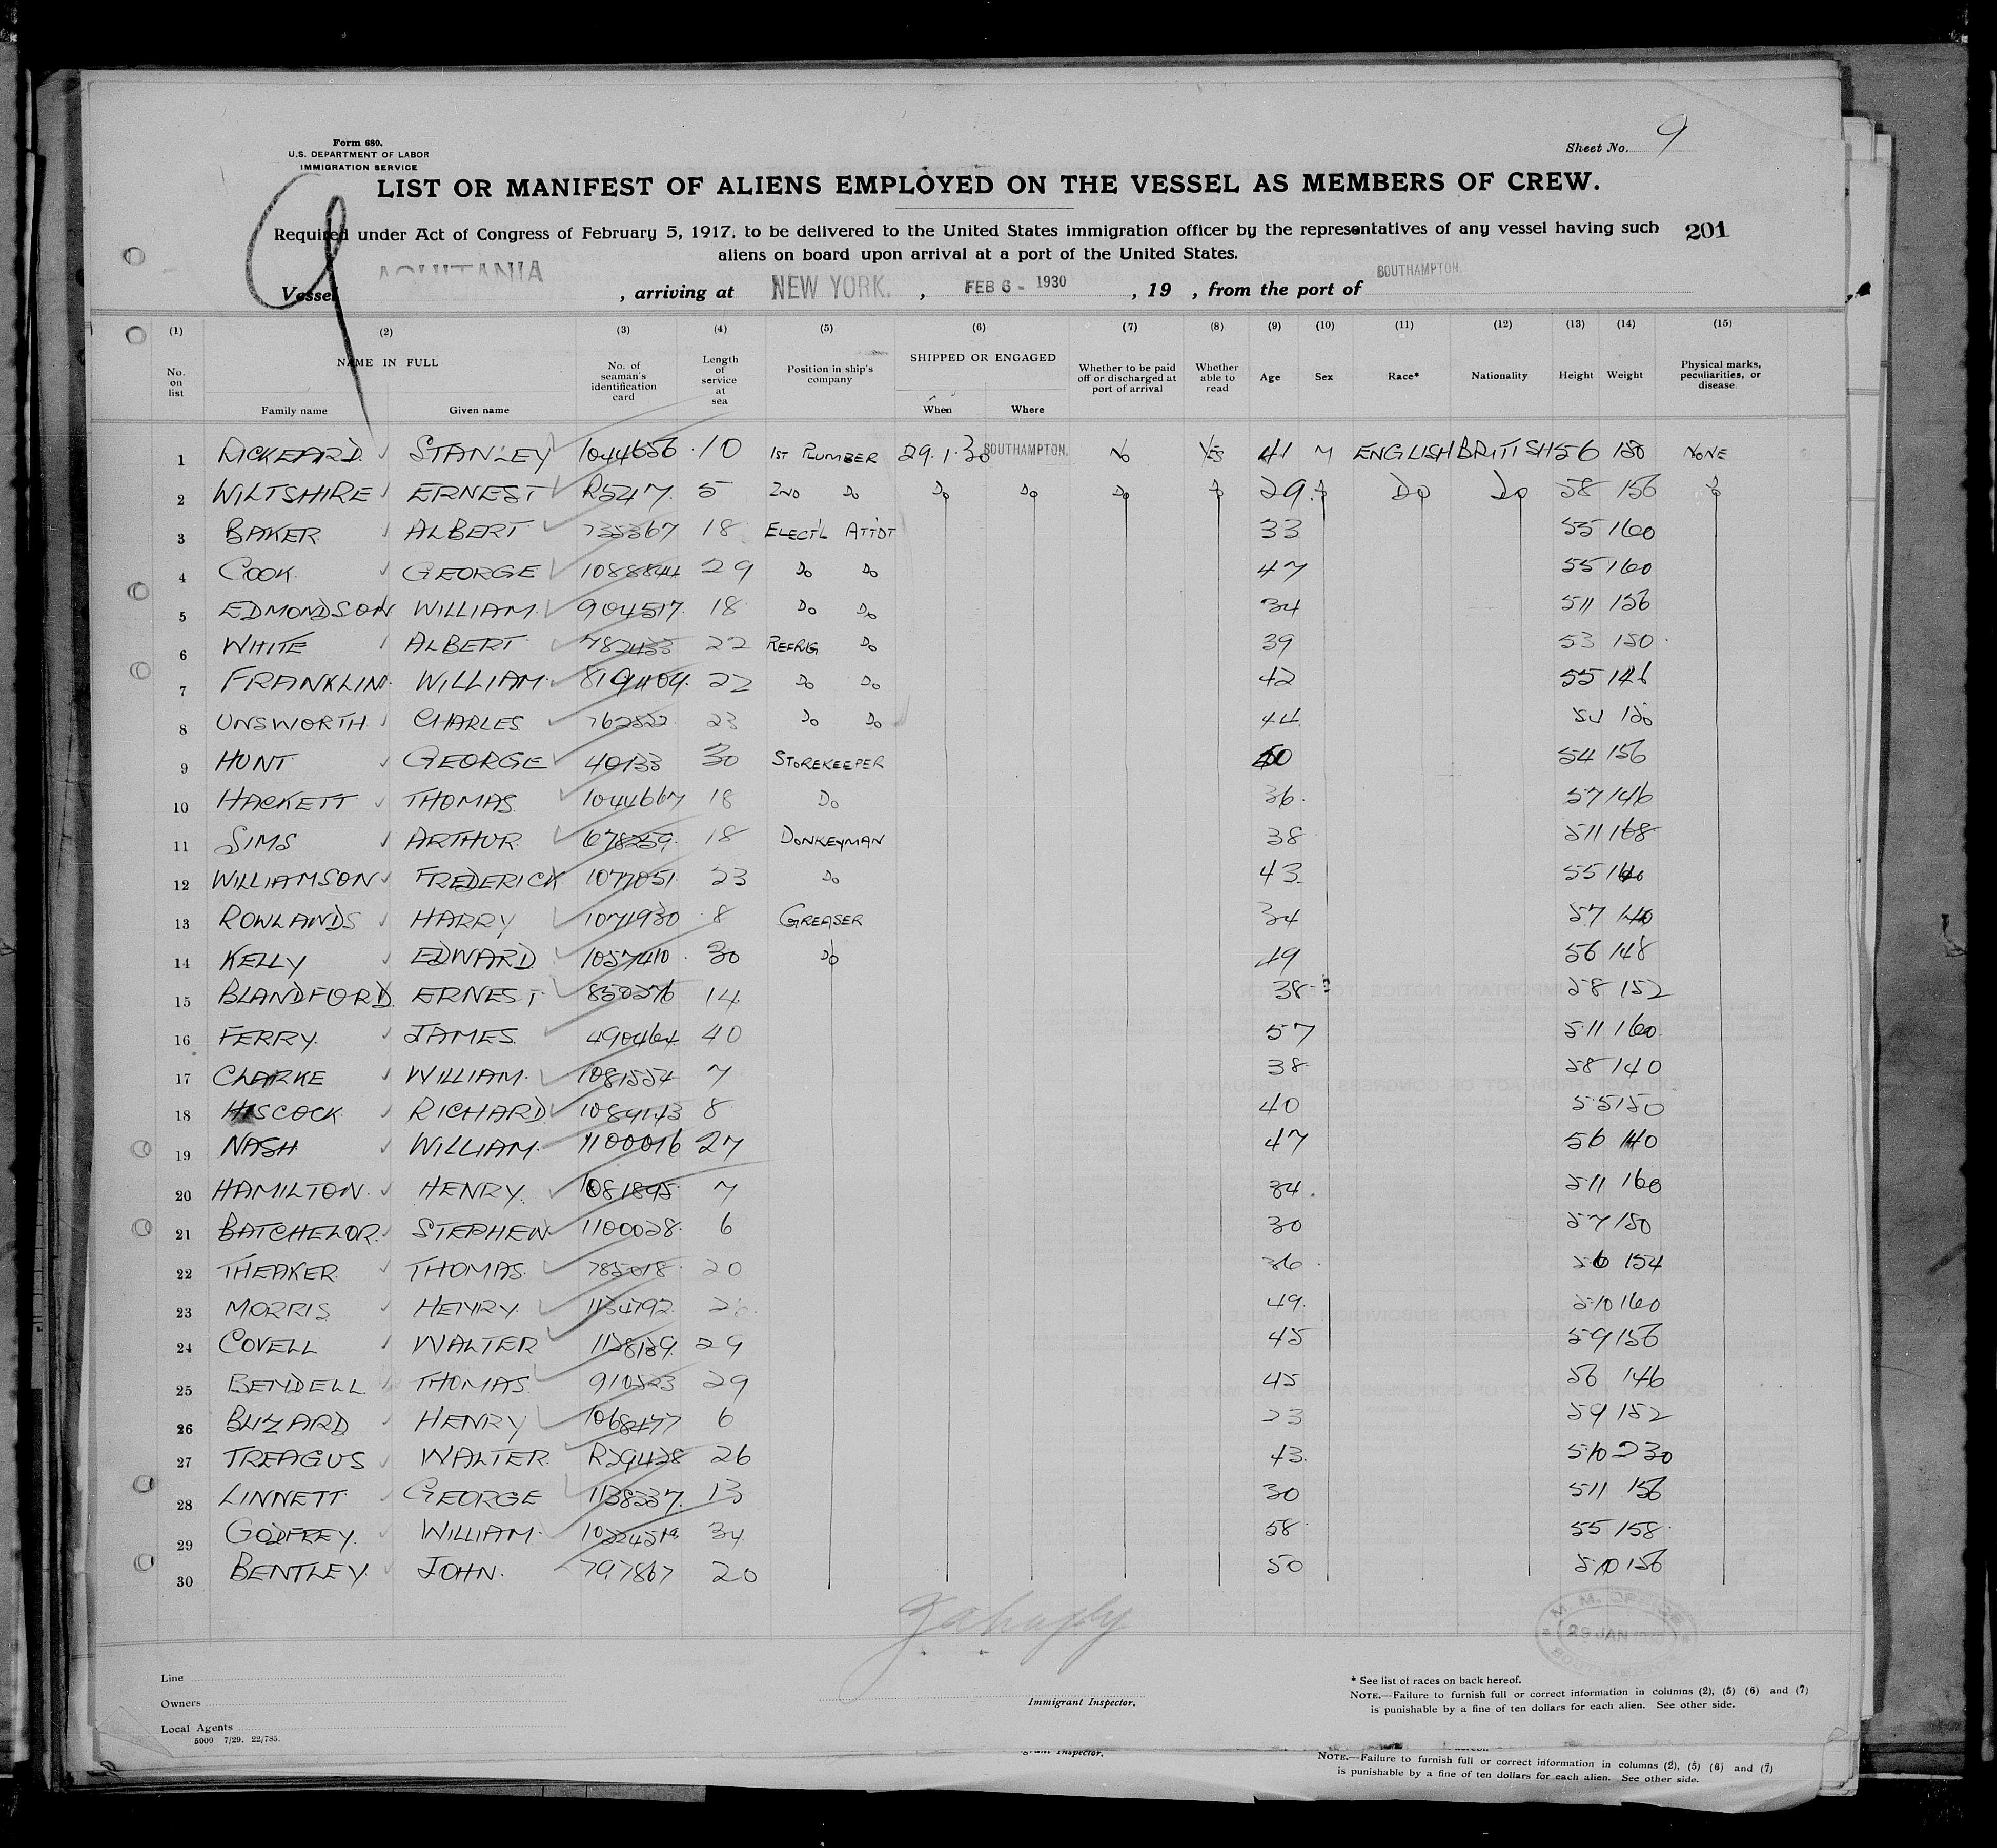 Form 680.
U.S. DEPARTMENT OF LABOR
IMMIGRATION SERVICE
Sheet No. 9
LIST OR MANIFEST OF ALIENS EMPLOYED ON THE VESSEL AS MEMBERS OF CREW.
9
Required under Act of Congress of February 5, 1917, to be delivered to the United States immigration officer by the representatives of any vessel having such
aliens on board upon arrival at a port of the United States.
201
Vessel AQUITANIA , arriving at NEW YORK. , FEB 6 - 1930 , 19 , from the port of SOUTHAMPTON.
(1) (2) (3) (4) (5) (6) (7) (8) (9) (10) (11) (12) (13) (14) (15)
No. on list NAME IN FULL Family name Given name No. of seaman's identification card Length of service at sea Position in ship's company SHIPPED OR ENGAGED When Where Whether to be paid off or discharged at port of arrival Whether able to read Age Sex Race* Nationality Height Weight Physical marks, peculiarities, or disease
1 STANLEY 1044656 10 1ST PLUMBER 29.1.30 SOUTHAMPTON. No Yes 41 M ENGLISH BRITISH 56 150 NONE
2 WILTSHIRE ERNEST R5247 5 2ND Do Do Do Do Do 29 Do Do Do 58 156 Do
3 BAKER ALBERT 735367 18 ELECT'L ATTDT 33 55 160
4 COOK GEORGE 1088844 29 Do Do 47 55 160
5 EDMONDSON WILLIAM 904517 18 Do Do 34 511 156
6 WHITE ALBERT 782433 22 REFRIG Do 39 53 150
7 FRANKLIN WILLIAM 819409 22 Do Do 42 55 146
8 UNSWORTH CHARLES 762822 23 Do Do 44 54 150
9 HUNT GEORGE 40133 30 STOREKEEPER 50 54 156
10 HACKETT THOMAS 1044667 18 Do 36 57 146
11 SIMS ARTHUR 678259 18 DONKEYMAN 38 511 168
12 WILLIAMSON FREDERICK 1077051 23 Do 43 55 140
13 ROWLANDS HARRY 1071930 8 GREASER 34 57 140
14 KELLY EDWARD 1057410 30 Do 49 56 148
15 BLANDFORD ERNEST 850276 14 38 58 152
16 FERRY JAMES 490464 40 57 511 160
17 CLARKE WILLIAM 1081554 7 38 58 140
18 HISCOCK RICHARD 1084143 8 40 55 150
19 NASH WILLIAM 1100016 27 47 56 140
20 HAMILTON HENRY 1081895 7 34 511 160
21 BATCHELOR STEPHEN 1100028 6 30 57 150
22 THEAKER THOMAS 785018 20 36 56 154
23 MORRIS HENRY 1134792 49 510 160
24 COVELL WALTER 1128139 29 45 59 156
25 BENDELL THOMAS 910523 29 45 56 146
26 BLIZARD HENRY 1068477 6 23 59 152
27 TREAGUS WALTER R29428 26 43 510 230
28 LINNETT GEORGE 1138337 13 30 511 156
29 GODFREY WILLIAM 34 58 55 158
30 BENTLEY JOHN 797867 20 50 510 156
M. M. OFFICE
29 JAN
SOUTHAMPTON
Line
Owners
Local Agents
5000 7/29. 22/785.
Immigrant Inspector.
* See list of races on back hereof.
NOTE.—Failure to furnish full or correct information in columns (2), (5) (6) and (7)
is punishable by a fine of ten dollars for each alien. See other side.
Inspector.
NOTE.—Failure to furnish full or correct information in columns (2), (5) (6) and (7)
is punishable by a fine of ten dollars for each alien. See other side.